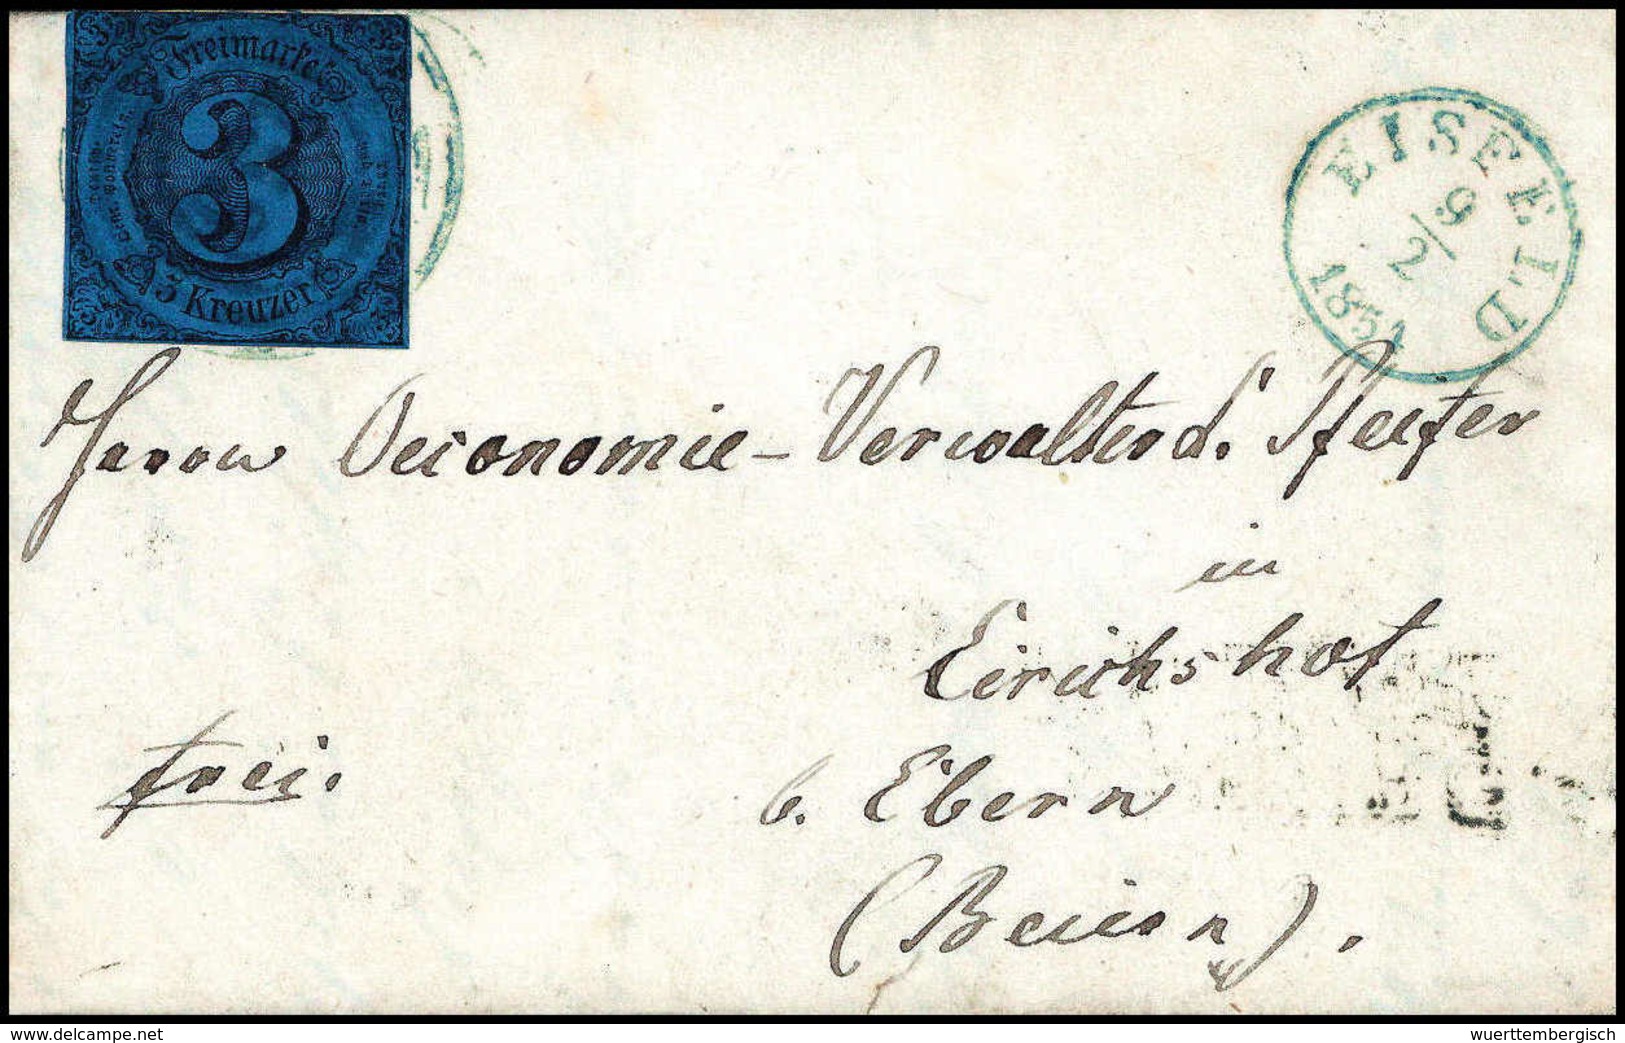 Freimarke
3
3 Kreuzer
EISFELD
9/2
1854
Herrn Oeconomie-Verwalter d. Pfeifer
in
Eirichshof
frei.
b. Ebern
(Baiern).
ma-shops.com
wuerttembergisch